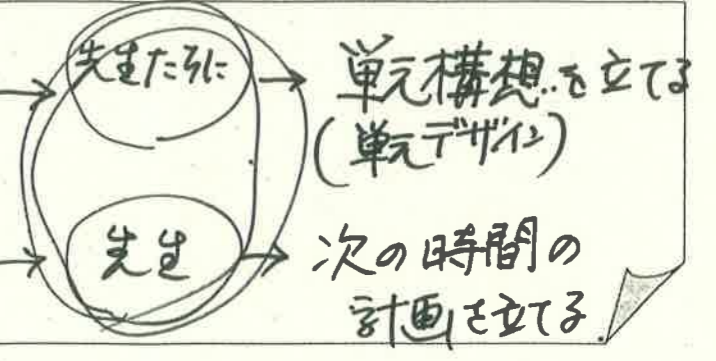 先生たちに → 単元構想を立てる
(単元デザイン)
先生 → 次の時間の
計画を立てる